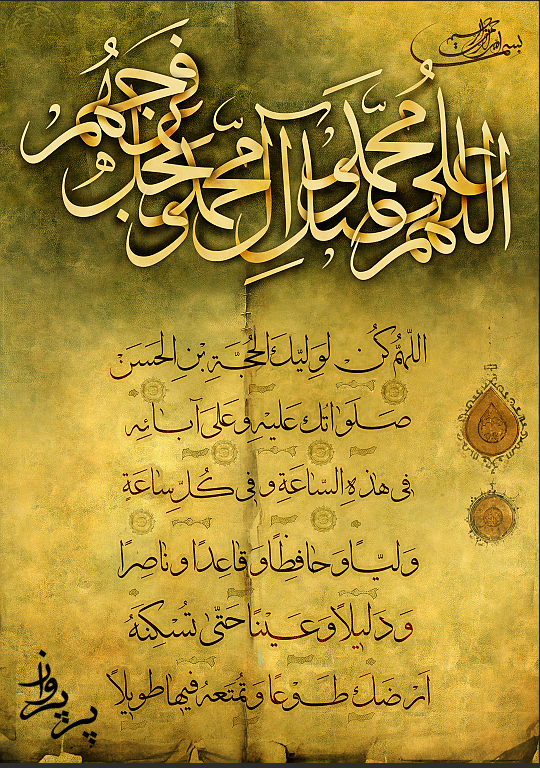 بسم الله الرحمن الرحيم
اللهم صل على محمد و آل محمد و عجل فرجهم
اللّهُمَّ كُن لِوَليِّكَ الحُجَّةِ بْنِ الحَسَن
صَلَواتُكَ عَلَيْهِ وَعَلى آبائِه
في هذِهِ السّاعَةِ و في كُلِّ ساعَة
وَليّاً وَحافِظاً وَقاعِدًا وَناصِرًا
وَدَليلاً وَعَيْنًا حَتّى تُسْكِنَهُ
اَرْضَكَ طَوْعًا وَتُمَتِّعَهُ فيها طَويلاً
پرپرواز